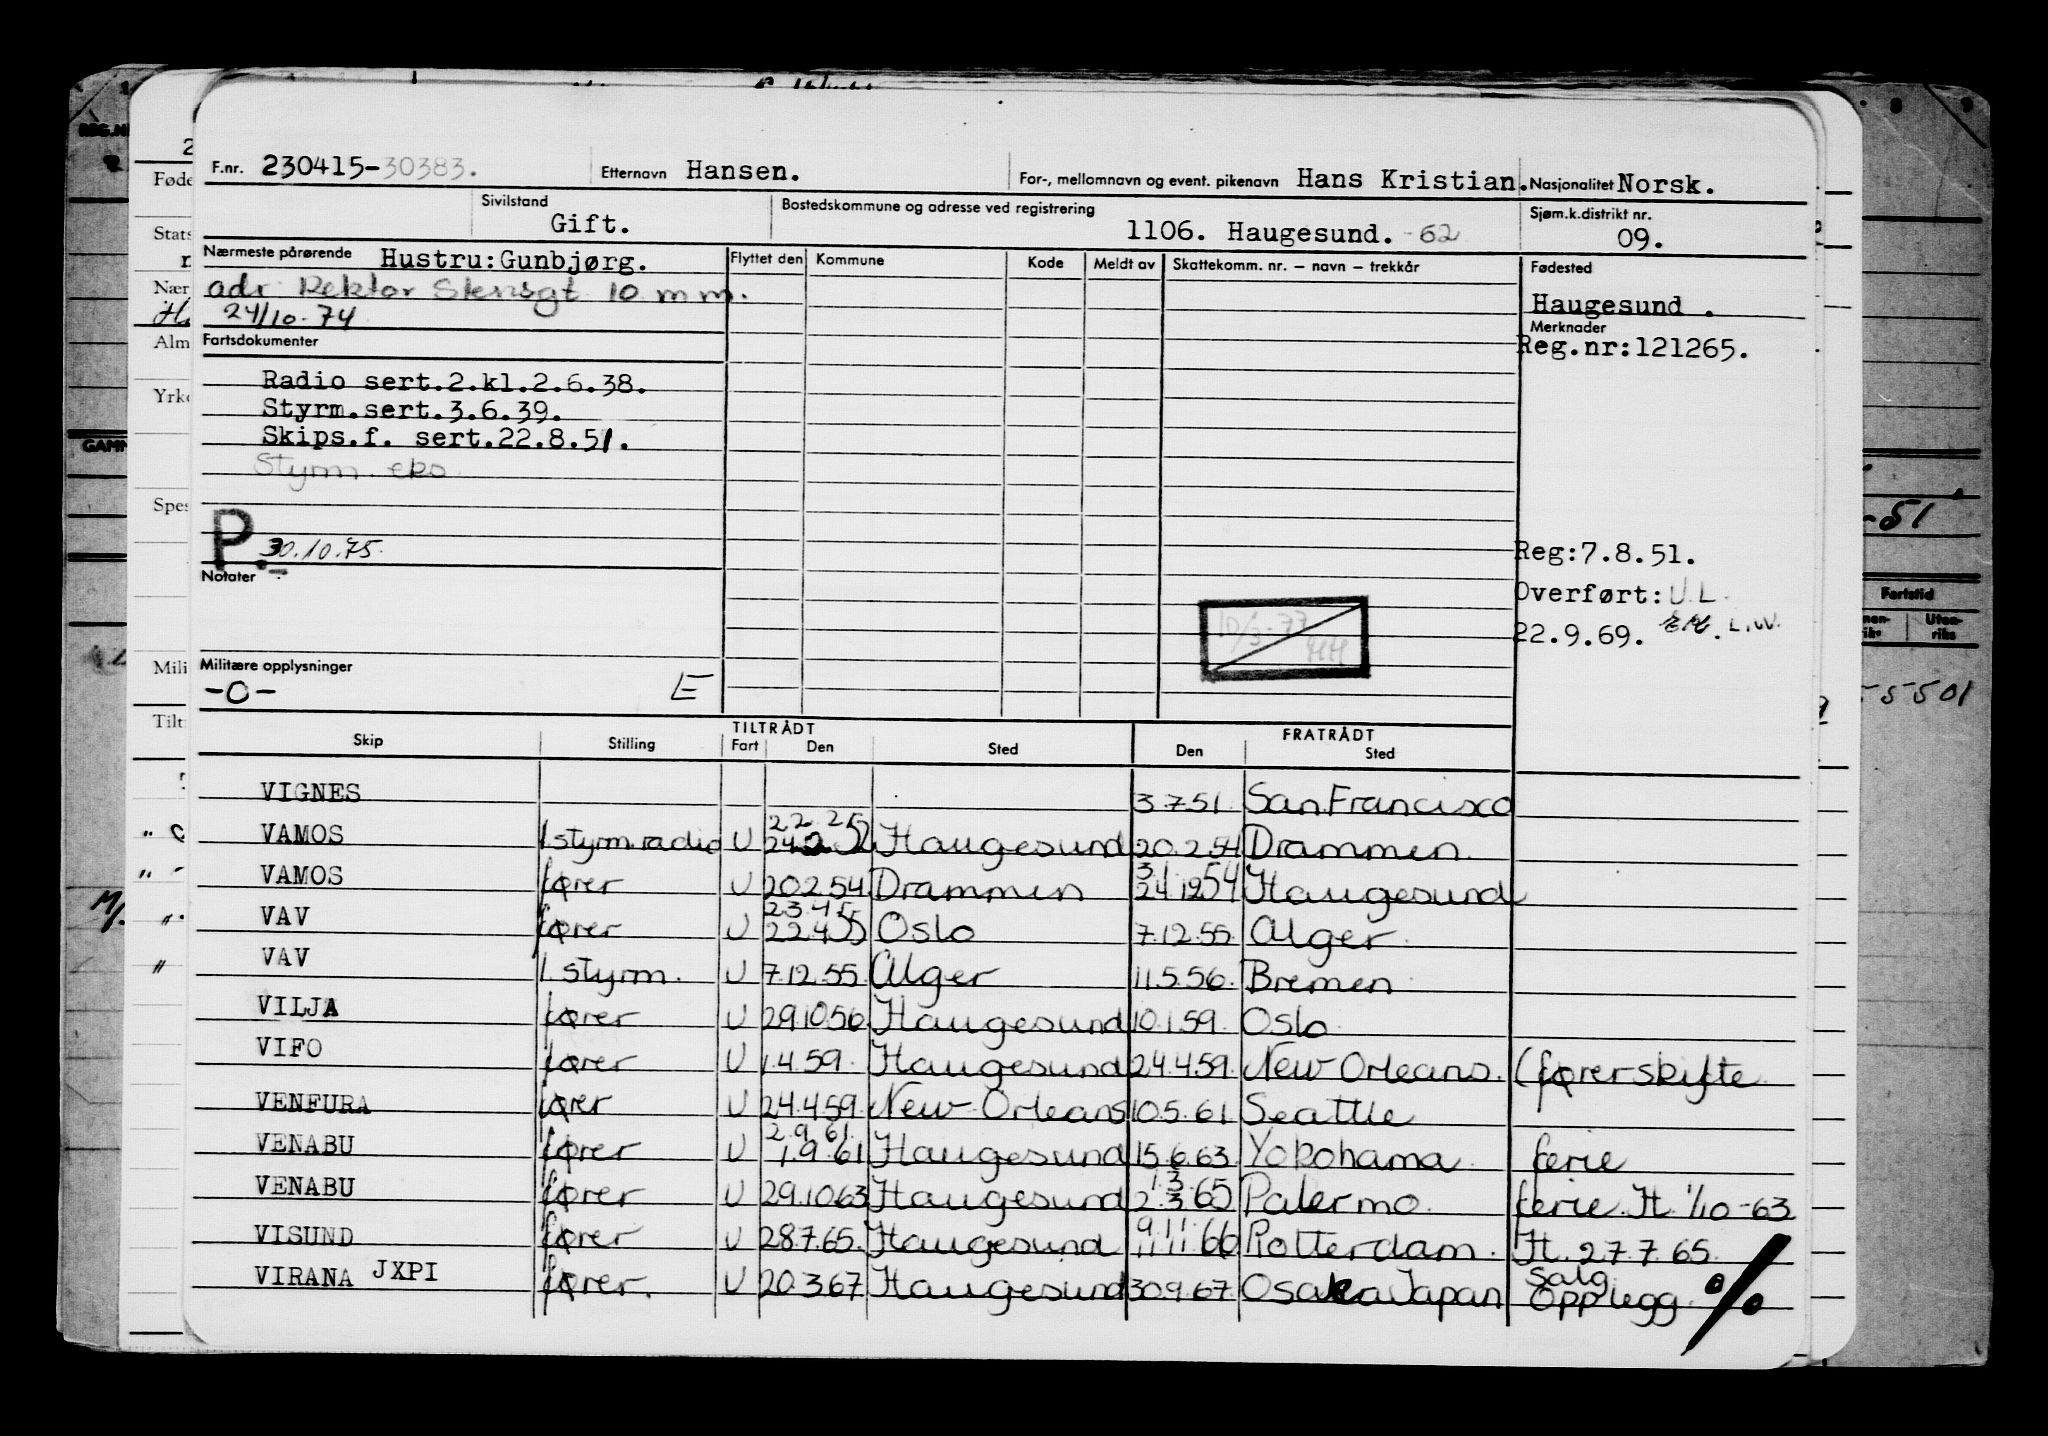 F.nr. 230415-30383. Etternavn Hansen. For-, mellomnavn og event. pikenavn Hans Kristian. Nasjonalitet Norsk.
Sivilstand Gift. Bostedskommune og adresse ved registrering 1106. Haugesund. -62 Sjøm.k.distrikt nr. 09.
Nærmeste pårørende Hustru:Gunbjørg. Flyttet den Kommune Kode Meldt av Skattekomm. nr. – navn – trekkår Fødested
adr Rektor Stensgt 10 m m. Haugesund .
24/10-74 Merknader
Fartsdokumenter Reg.nr:121265.
Radio sert.2.kl.2.6.38.
Styrm.sert.3.6.39.
Skips.f. sert.22.8.51.
Styrm. eks
P. 30.10.75. Reg:7.8.51.
Notater
Overført: U.L.
10/3-77 HH 22.9.69. L.W.
Militære opplysninger
-0- E
TILTRÅDT FRATRÅDT
Skip Stilling Fart Den Sted Den Sted
VIGNES 3.7.51. San Francisco
22.2.52
VAMOS 1 styrm. radio U 24.2.52 Haugesund 20.2.54 Drammen.
31
VAMOS fører U 20.2.54. Drammen 24.12.54 Haugesund
23.4.55
VAV fører U 22.4.55 Oslo 7.12.55. Alger.
VAV 1. styrm. U 7.12.55. Alger 11.5.56. Bremen
VILJA fører U 29.10.56. Haugesund 10.1.59. Oslo.
VIFO fører U 1.4.59. Haugesund 24.4.59. New Orleans. (førerskifte
VENFURA fører U 24.4.59. New Orleans 10.5.61. Seattle
2.9.61.
VENABU fører U 1.9.61 Haugesund 15.6.63. Yokohama ferie
1.3.
VENABU fører U 29.10.63 Haugesund 2.3.65 Palermo. ferie. H. 1/10-63
9.11.
VISUND fører U 28.7.65. Haugesund 11.11.66 Rotterdam. H. 27.7.65.
VIRANA JXPI fører. U 20.3.67 Haugesund 30.9.67. Osaka Japan salg
Opplegg. %
REG.N
Føde
Stats
Nær
Alm
Yrke
GAMM
Spes
Mili
Tilt
8 9
-51
Fartstid
Uten-
riks
5-5501